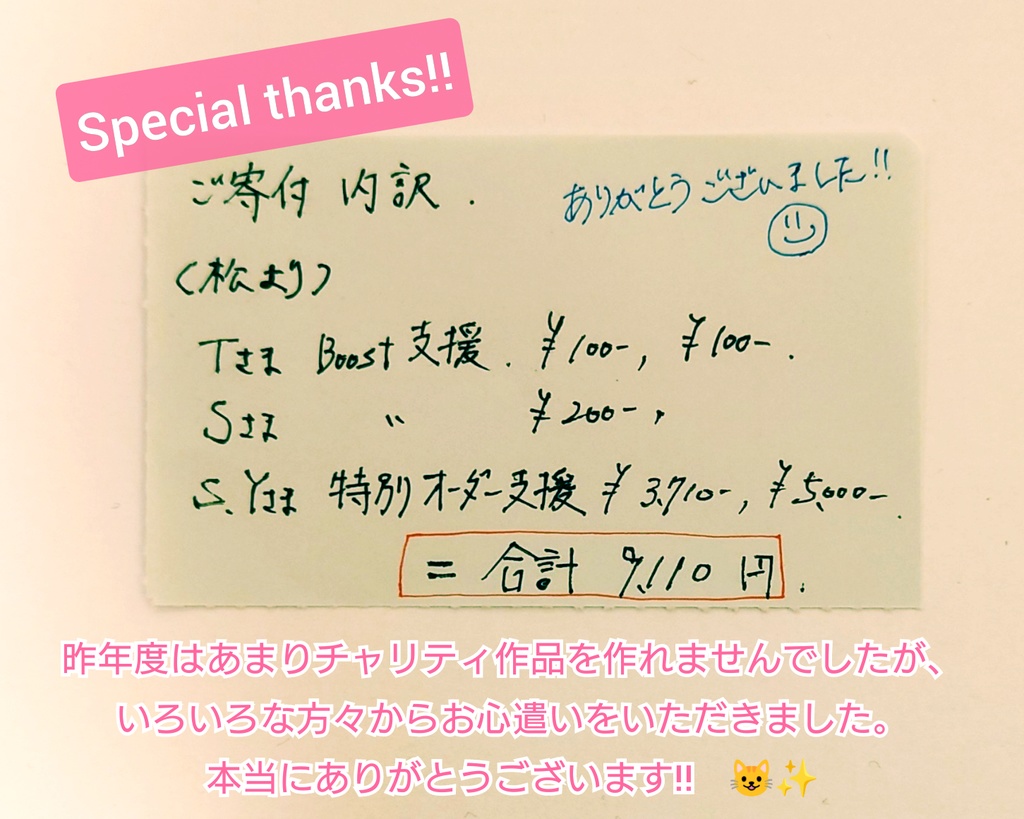 Special thanks!!
ご寄付 内訳.
ありがとうございました!!
(松より)
Tさま Boost支援. ¥100-, ¥100-.
Sさま 〃 ¥200-,
S.Yさま 特別オーダー支援 ¥3,710-, ¥5,000-.
= 合計 9,110円.
昨年度はあまりチャリティ作品を作れませんでしたが、
いろいろな方々からお心遣いをいただきました。
本当にありがとうございます!! 😺✨